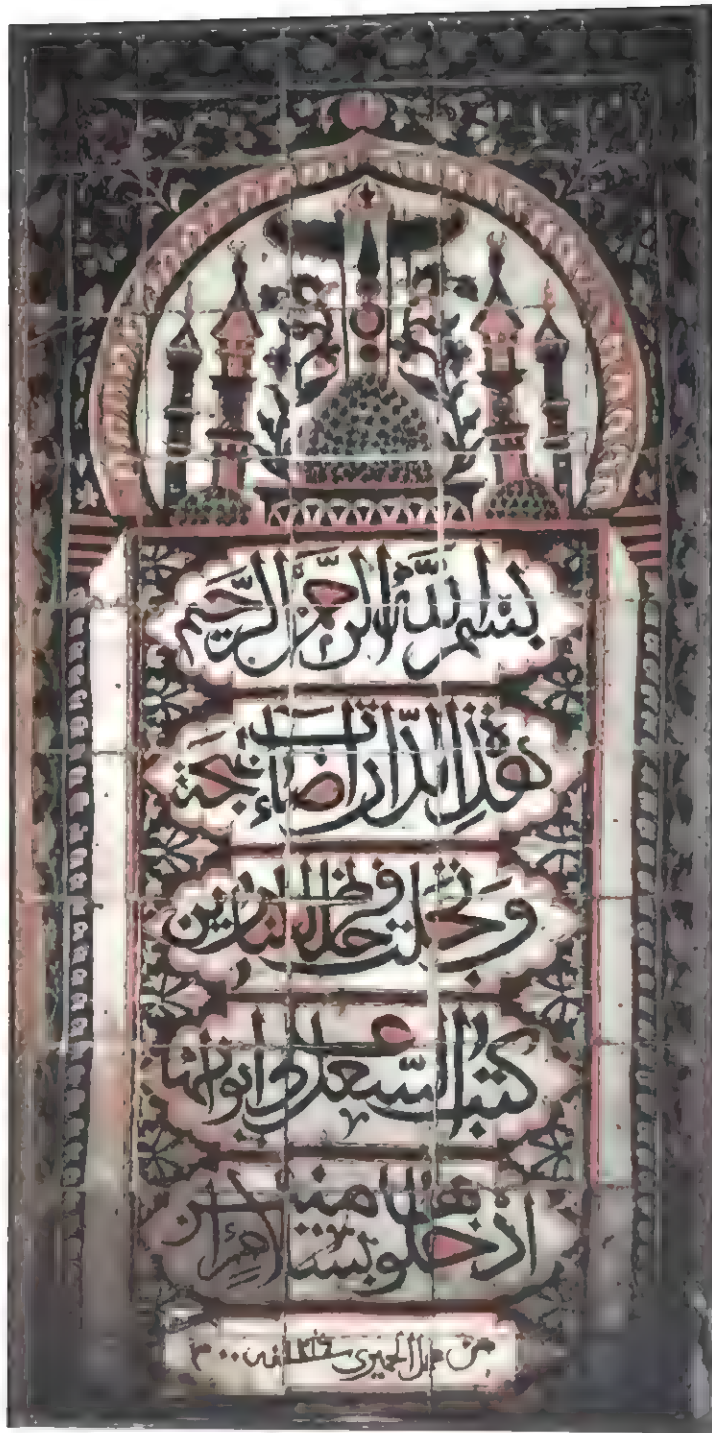 بسم الله الرحمن الرحيم
هذه الدار أضاءت بهجة
وتجلت فرحا للناظرين
كتب السعد على ابوابها
ادخلوها بسلام امنين
من عمل